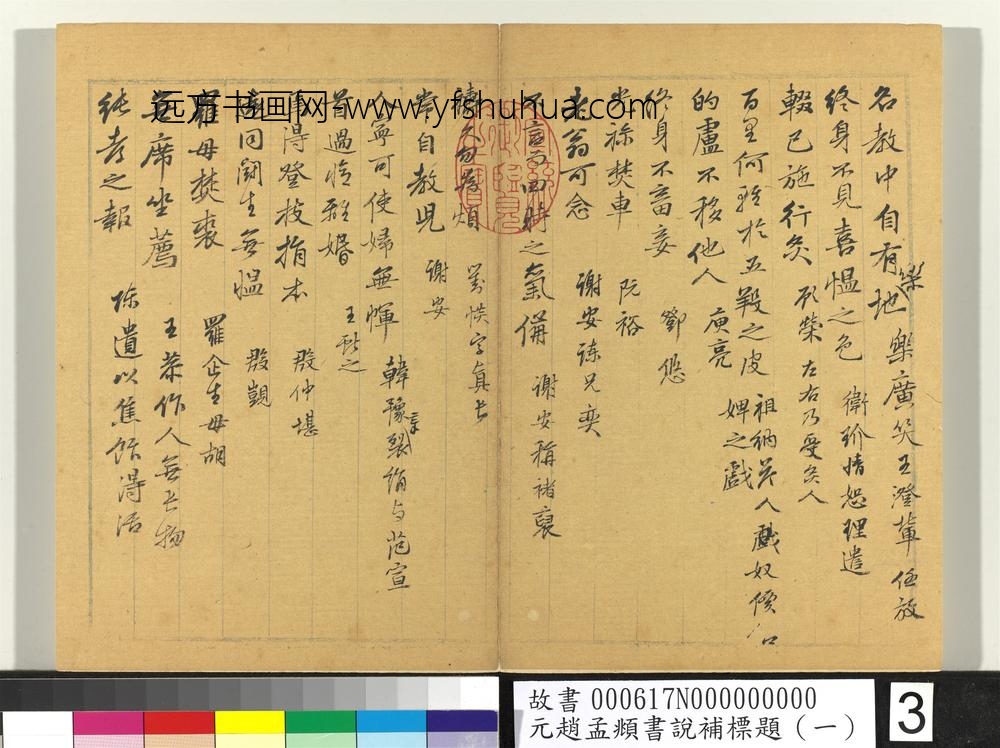 名教中自有樂地 樂廣笑王澄輩任放
終身不見喜慍之色 衛玠情恕理遣
輟己施行炙 顧榮 左右乃受炙人
百里何殊於五羖之皮 祖納 或人戲奴價倍婢之戲
的盧不移他人 庾亮
終身不畜妾 鄧悠
嘗祢焚車 阮裕
老翁可念 謝安諫兄奕
不言而四時之氣備 謝安稱褚裒
劉惔字真長
常自教兒 謝安
寧可使婦無幝 韓豫章裂絹与范宣
首過悔離婚 王獻之
得登枝捐本 殷仲堪
同開生無慍 殷覬
羅母焚裘 羅企生母胡
無席坐薦 王恭作人無長物
純孝之報 陳遺以焦飯得活
远方书画网-www.yfshuhua.com
故書 000617N000000000
元趙孟頫書說補標題（一）
3